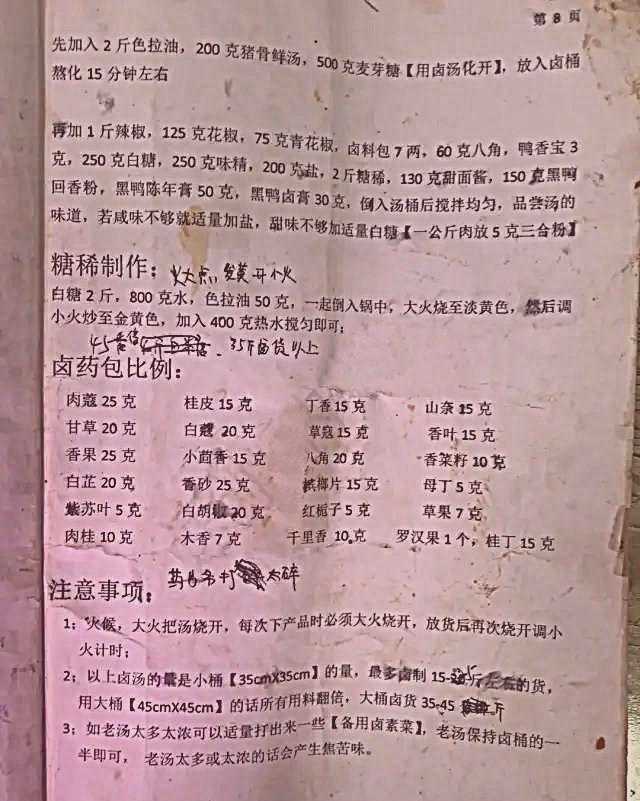 第 8 页
先加入 2 斤色拉油，200 克猪骨鲜汤，500 克麦芽糖【用卤汤化开】，放入卤桶
熬化 15 分钟左右
再加 1 斤辣椒，125 克花椒，75 克青花椒，卤料包 7 两，60 克八角，鸭香宝 3
克，250 克白糖，250 克味精，200 克盐，2 斤糖稀，130 克甜面酱，150 克黑鸭
回香粉，黑鸭陈年膏 50 克，黑鸭卤膏 30 克，倒入汤桶后搅拌均匀，品尝汤的
味道，若咸味不够就适量加盐，甜味不够加适量白糖【一公斤肉放 5 克三合粉】
糖稀制作；
开小火
白糖 2 斤，800 克水，色拉油 50 克，一起倒入锅中，大火烧至淡黄色，然后调
小火炒至金黄色，加入 400 克热水搅匀即可；
35斤卤货以上
卤药包比例：
肉蔻 25 克 桂皮 15 克 丁香 15 克 山柰 15 克
甘草 20 克 白蔻 20 克 草寇 15 克 香叶 15 克
香果 25 克 小茴香 15 克 八角 20 克 香菜籽 10 克
白芷 20 克 香砂 25 克 槟榔片 15 克 母丁 5 克
紫苏叶 5 克 白胡椒 20 克 红栀子 5 克 草果 7 克
肉桂 10 克 木香 7 克 千里香 10 克 罗汉果 1 个，桂丁 15 克
注意事项；
太碎
1；火候，大火把汤烧开，每次下产品时必须大火烧开，放货后再次烧开调小
火计时；
2；以上卤汤的量是小桶【35cmX35cm】的量，最多卤制 15-25斤左右的货，
用大桶【45cmX45cm】的话所有用料翻倍，大桶卤货 35-45 斤
3；如老汤太多太浓可以适量打出来一些【备用卤素菜】，老汤保持卤桶的一
半即可，老汤太多或太浓的话会产生焦苦味。